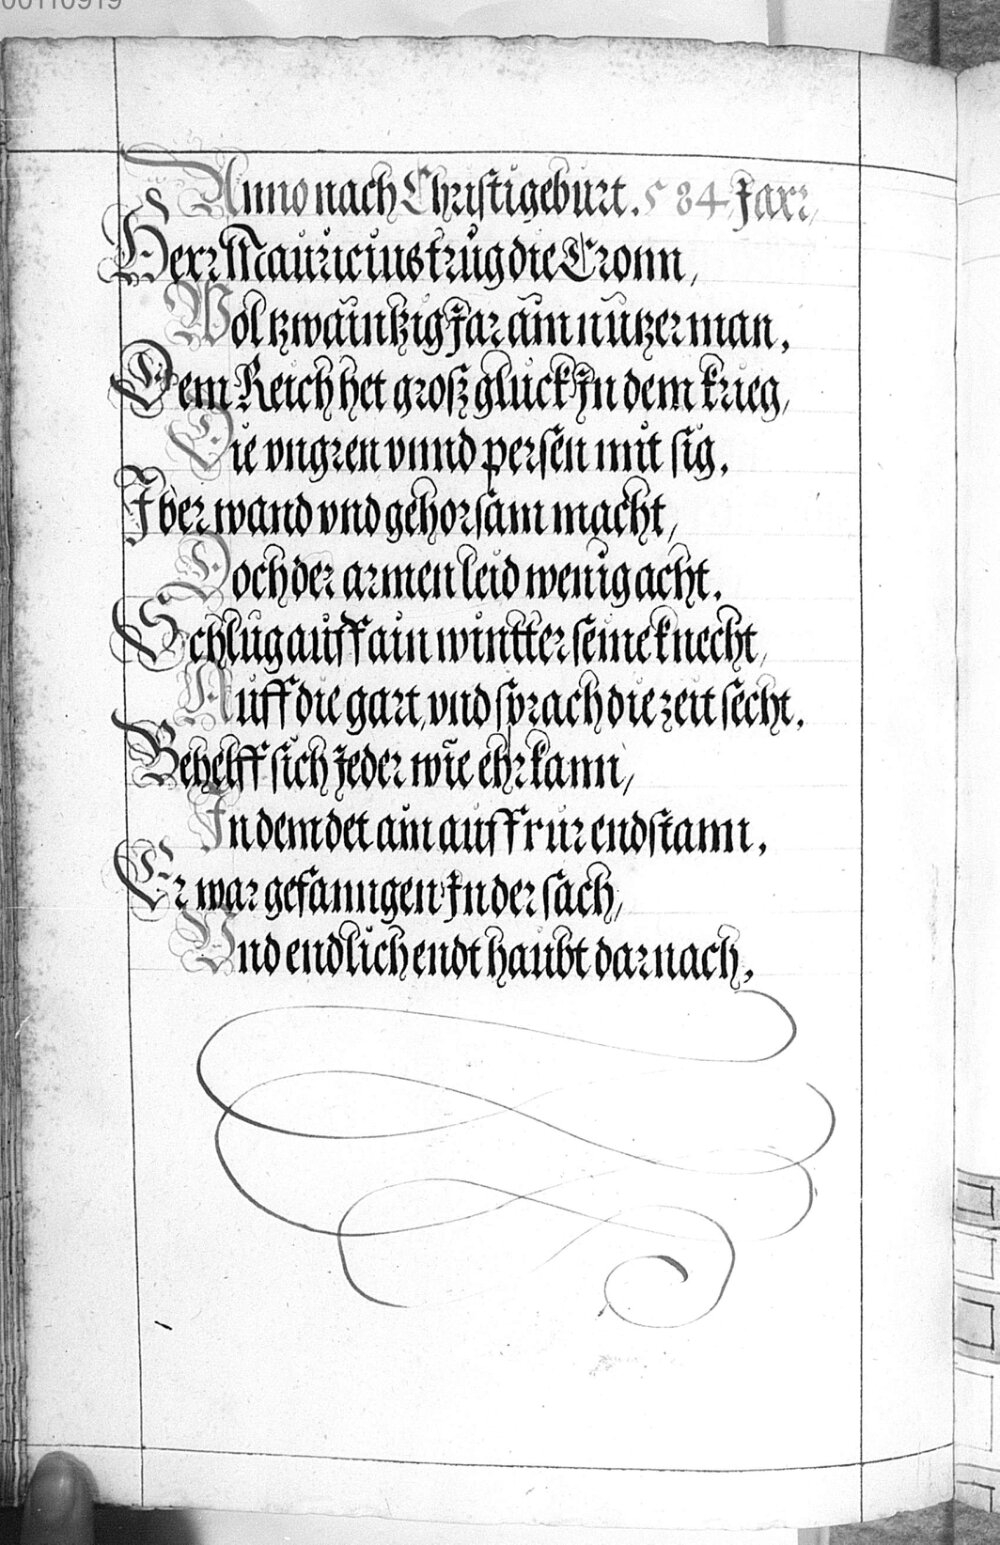 00110919
Anno nach Christi geburt. 584 Jarr,
Herr Mauricius trug die Cronn,
Wol tzwaintzig Jar ain nützer man.
Dem Reich het grosz gluck Jn dem krieg,
Die vngren vnnd persen mit sig.
Iber wand vnd gehorsam macht,
Doch der armen leid wenig acht.
Schlug auff ain wintter seine knecht,
Auff die gart, vnd sprach die zeit secht.
Behelff sich Jeder wie ehr kann,
In dem det ain auffrur endstann.
Er war gefanngen Jn der sach,
Vnd endlich endt haubt darnach.